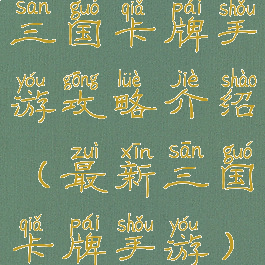 sān guó qiǎ pái shǒu
三国卡牌手
yóu gōng lüè jiè shào
游攻略介绍
zuì xīn sān guó
（最新三国
qiǎ pái shǒu yóu
卡牌手游）